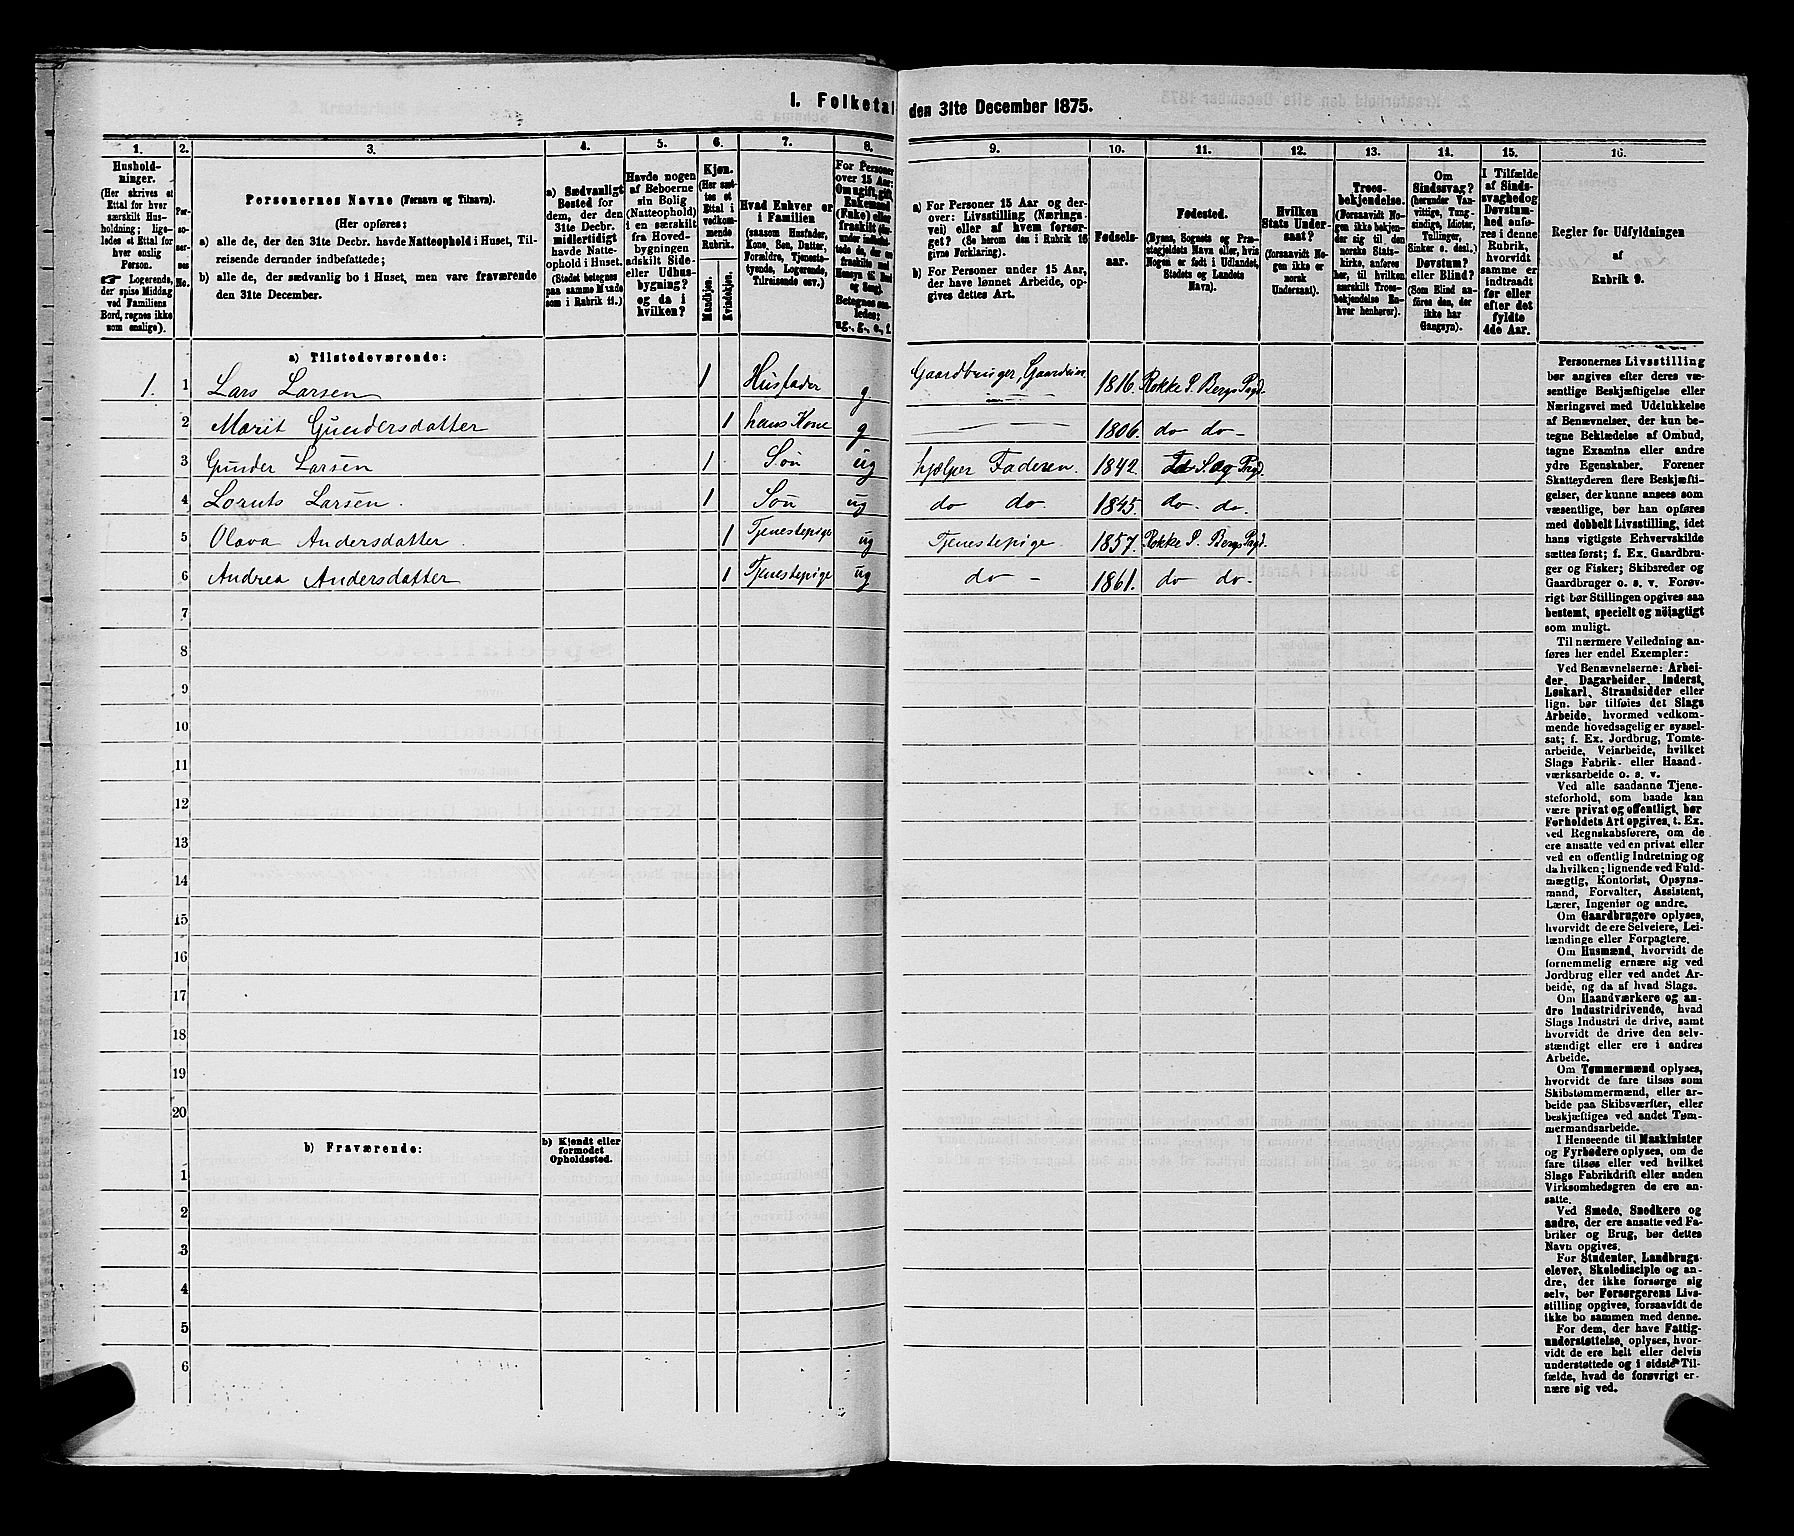 I. Folketal den 31te December 1875.
1.
Hushold-
ninger.
(Her skrives et
Ettal for hver
særskilt Hus-
holdning; lige-
ledes et Ettal for
hver enslig
Person.
Logerende,
der spise Middag
ved Familiens
Bord, regnes ikke
som enslige).
2.
Per-
so-
ner-
nes
No.
3.
Personernes Navne (Fornavn og Tilnavn).
(Her opføres:
a) alle de, der den 31te Decbr. havde Natteophold i Huset, Til-
reisende derunder indbefattede;
b) alle de, der sædvanlig bo i Huset, men vare fraværende
den 31te December.
4.
a) Sædvanligt
Bosted for
dem, der den
31te Decbr.
midlertidigt
havde Natte-
ophold i Huset.
(Stedet betegnes
paa samme Maade
som i Rubrik 11.)
5.
Havde nogen
af Beboerne
sin Bolig
(Natteophold)
i en særskilt
fra Hoved-
bygningen
adskilt Side-
eller Udhus-
bygning?
og da i
hvilken?
6.
Kjøn.
(Her sæt-
tes et
Ettal i
vedkom-
mende
Rubrik.
Mandkjøn.
Kvindekjøn.
7.
Hvad Enhver er
i Familien
(saasom Husfader,
Kone, Søn, Datter,
Forældre, Tjeneste-
tyende, Logerende,
Tilreisende osv.)
8.
For Personer
over 15 Aar:
Om ugift, gift,
Enkemand
(Enke) eller
fraskilt
Betegnes saa-
ledes:
ug., g., e., f.
9.
a) For Personer 15 Aar og der-
over: Livsstilling (Nærings-
vei) eller af hvem forsør-
get? (Se herom den i Rubrik 16
givne Forklaring).
b) For Personer under 15 Aar,
der have lønnet Arbeide, op-
gives dettes Art.
10.
Fødsels-
aar.
11.
Fødested.
(Byens, Sognets og Præ-
stegjeldets Navn eller, hvis
Nogen er født i Udlandet,
Stedets og Landets
Navn).
12.
Hvilken
Stats Under-
saat?
(forsaavidt No-
gen ikke er
norsk
Undersaat).
13.
Troes-
bekjendelse.
(Forsaavidt No-
gen ikke bekjen-
der sig til den
norske Stats-
kirke, anføres
her, til hvilken
særskilt Troes-
bekjendelse En-
hver henhører).
14.
Om
Sindssvag?
(herunder Van-
vittige, Tung-
sindige, Idioter,
Tullinger,
Sinker o. desl.)
Døvstum?
eller Blind?
(Som Blind an-
føres den, der
ikke har
Gangsyn).
15.
I Tilfælde
af Sinds-
svaghed og
Døvstum-
hed anfø-
res i denne
Rubrik,
hvorvidt
samme er
indtraadt
før eller
efter det
fyldte
4de Aar.
16.
Regler for Udfyldningen
af
Rubrik 9.
a) Tilstedeværende:
1. 1 Lars Larsen 1 Husfader g Gaardbruger, 1816. Rokke S. Bergs Prgd.
2 Marit Gundersdatter 1 hans Kone g 1806. do do-
3 Gunder Larsen 1 Søn ug hjelper Faderen. 1842. Prgd.
4 Loruts Larsen. 1 Søn ug do do. 1845. do. do.
5 Olava Andersdatter. 1 Tjenestepige ug Tjenestepige. 1857. Rokke S. Bergs Prgd.
6 Andrea Andersdatter 1 Tjenestepige ug do - 1861. do do-
7
8
9
10
11
12
13
14
15
16
17
18
19
20
b) Fraværende:
b) Kjendt eller
formodet
Opholdssted.
1
2
3
4
5
6
Personernes Livsstilling
bør angives efter deres væ-
sentlige Beskjæftigelse eller
Næringsvei med Udelukkelse
af Benævnelser, der kun be-
tegne Beklædelse af Ombud,
tagne Examina eller andre
ydre Egenskaber. Forener
Skatteyderen flere Beskjæfti-
gelser, der kunne ansees som
væsentlige, bør han opføres
med dobbelt Livsstilling, idet
hans vigtigste Erhvervskilde
sættes først; f. Ex. Gaardbru-
ger og Fisker; Skibsreder og
Gaardbruger o. s. v. Forøv-
rigt bør Stillingen opgives saa
bestemt, specielt og nöiagtigt
som muligt.
Til nærmere Veiledning an-
føres her endel Exempler:
Ved Benævnelserne: Arbei-
der, Dagarbeider, Inderst,
Løskarl, Strandsidder eller
lign. bør tilføies det Slags
Arbeide, hvormed vedkom-
mende hovedsagelig er syssel-
sat; f. Ex. Jordbrug, Tomte-
arbeide, Veiarbeide, hvilket
Slags Fabrik- eller Haand-
værksarbeide o. s. v.
Ved alle saadanne Tjene-
steforhold, som baade kan
være privat og offentligt, bør
Forholdets Art opgives, t. Ex.
ved Regnskabsførere, om de
ere ansatte ved en privat eller
ved en offentlig Indretning og
da hvilken; lignende ved Fuld-
mægtig, Kontorist, Opsyns-
mand, Forvalter, Assistent,
Lærer, Ingeniør og andre.
Om Gaardbrugere oplyses,
hvorvidt de ere Selveiere, Lei-
lændinge eller Forpagtere.
Om Husmænd, hvorvidt de
fornemmelig ernære sig ved
Jordbrug eller ved andet Ar-
beide, og da af hvad Slags.
Om Haandværkere og an-
dre Industridrivende, hvad
Slags Industri de drive, samt
hvorvidt de drive den selv-
stændigt eller ere i andres
Arbeide.
Om Tømmermænd oplyses,
hvorvidt de fare tilsøs som
Skibstømmermænd, eller ar-
beide paa Skibsværfter, eller
beskjæftiges ved andet Tøm-
mermandsarbeide.
I Henseende til Maskinister
og Fyrbødere oplyses, om de
fare tilsøs eller ved hvilket
Slags Fabrikdrift eller anden
Virksomhedsgren de ere an-
satte.
Ved Smede, Snedkere og
andre, der ere ansatte ved Fa-
briker og Brug, bør dettes
Navn opgives.
For Studenter, Landbrugs-
elever, Skoledisciple og an-
dre, der ikke forsørge sig
selv, bør Forsørgerens Livs-
stilling opgives, forsaavidt de
ikke bo sammen med denne.
For dem, der have Fattig-
understøttelse, oplyses, hvor-
vidt de ere helt eller delvis
understøttede og i sidste Til-
fælde, hvad de forøvrigt er-
nære sig ved.